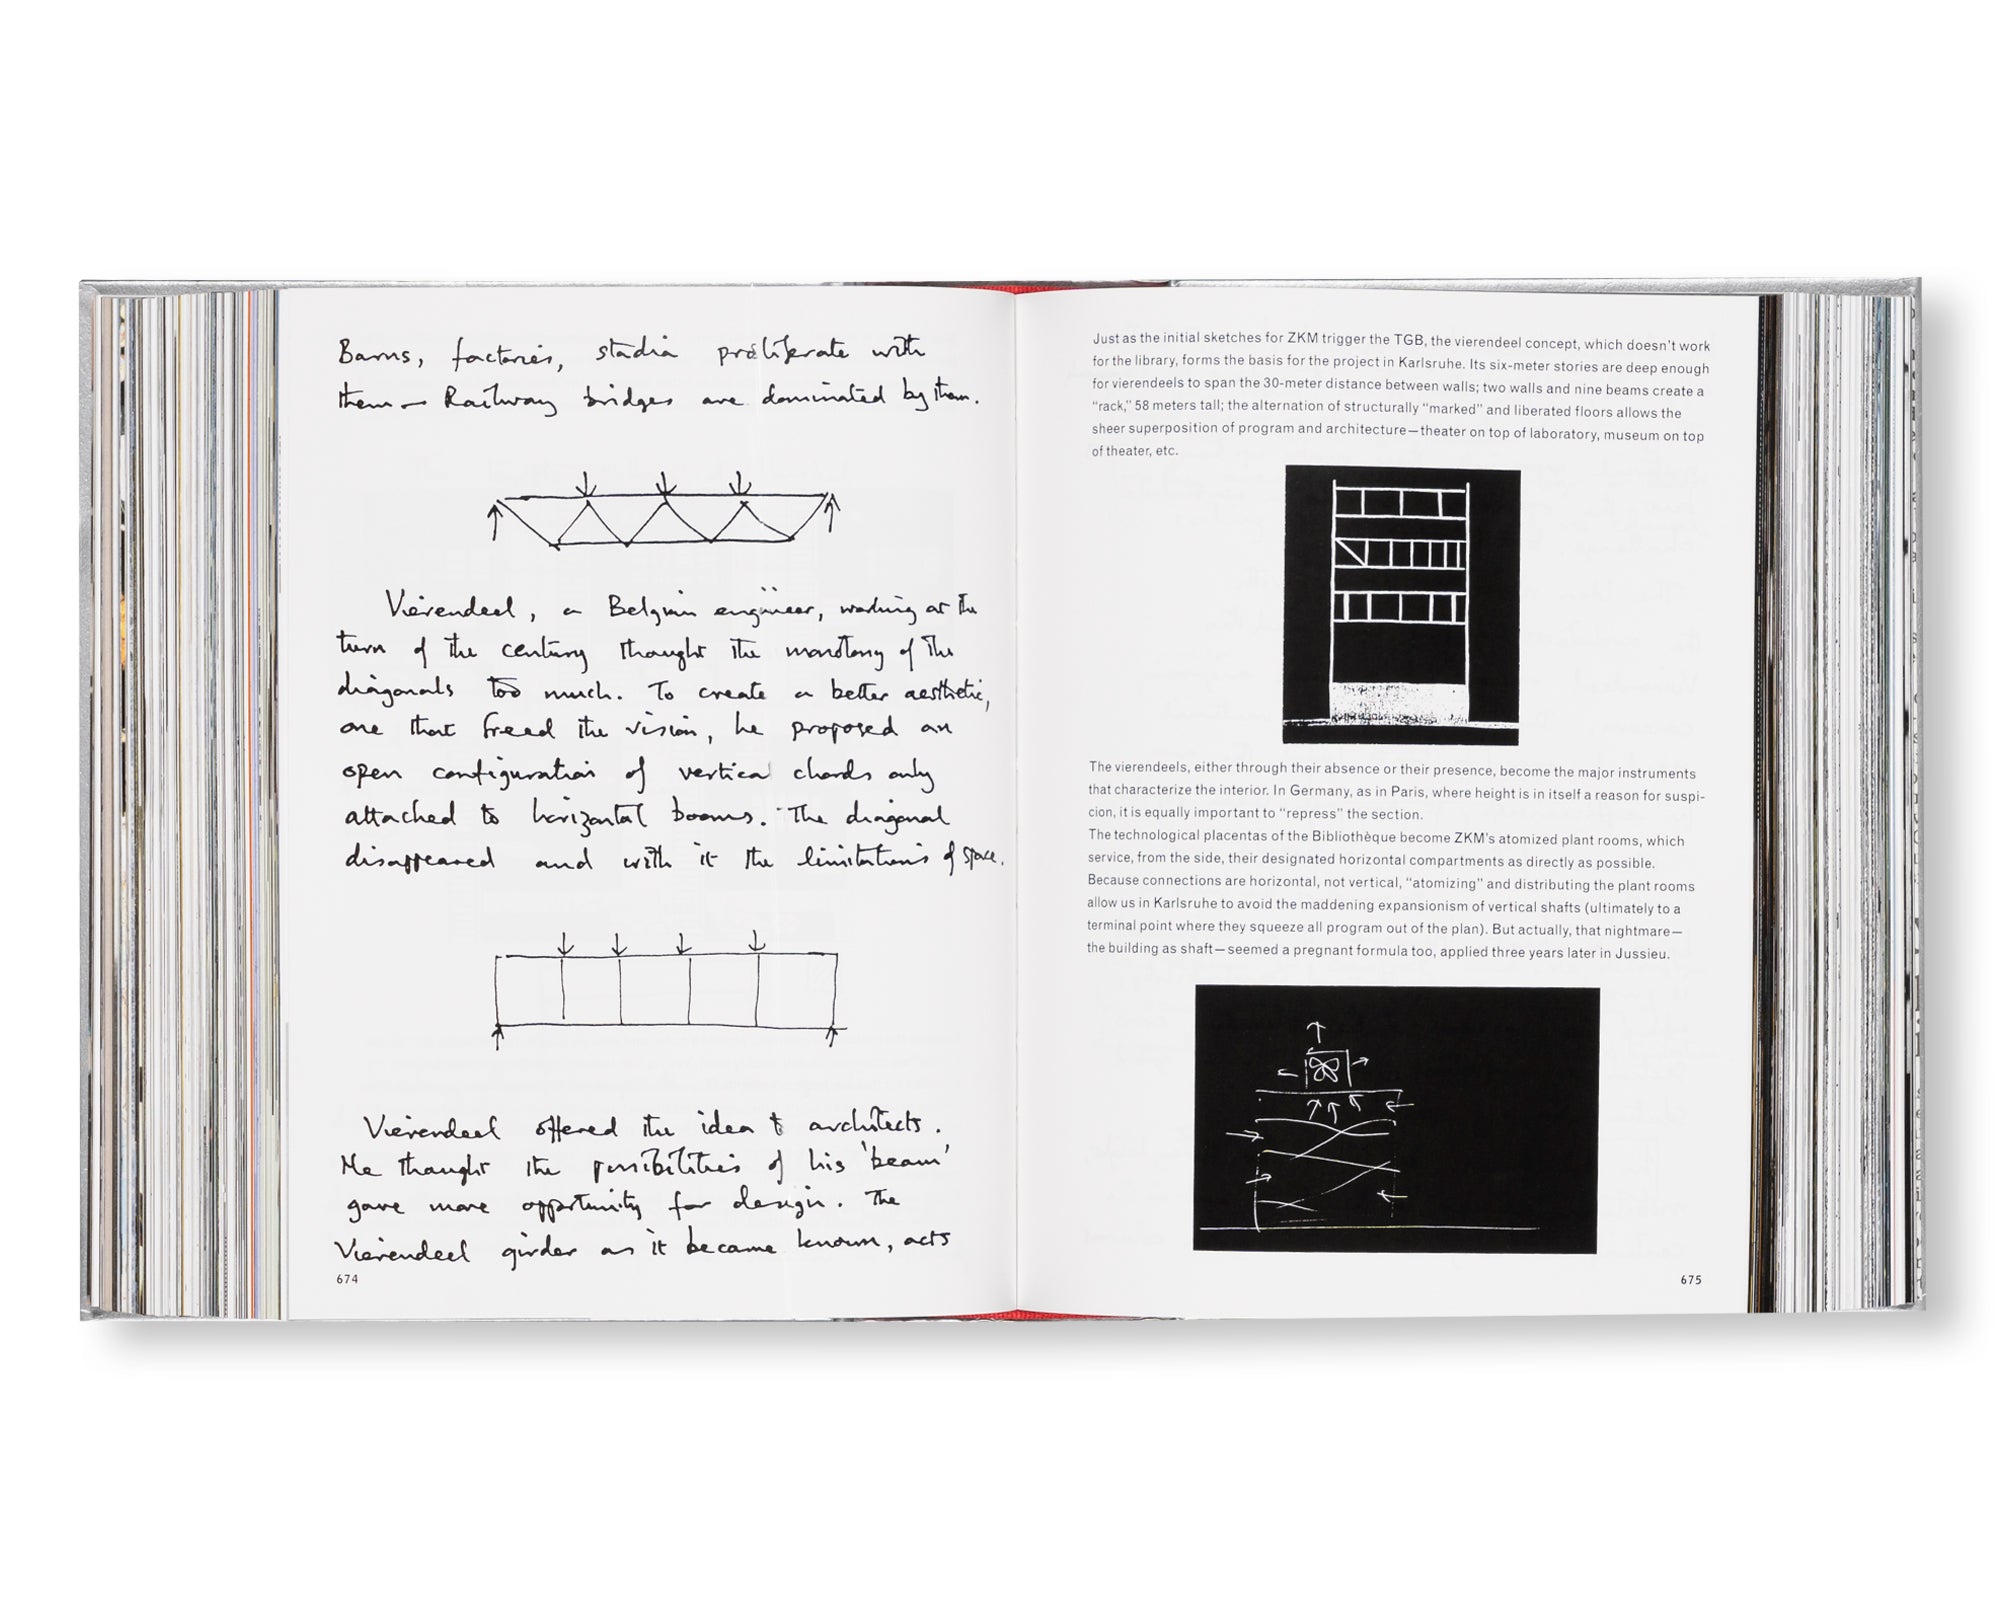 Barns, factories, stadia proliferate with
them – Railway bridges are dominated by them.
Vierendeel, a Belgian engineer, working at the
turn of the century thought the monotony of the
diagonals too much. To create a better aesthetic,
one that freed the vision, he proposed an
open configuration of vertical chords only
attached to horizontal booms. The diagonal
disappeared and with it the limitations of space.
Vierendeel offered the idea to architects.
He thought the possibilities of his 'beam'
gave more opportunity for design. The
Vierendeel girder as it became known, acts
674
Just as the initial sketches for ZKM trigger the TGB, the vierendeel concept, which doesn't work
for the library, forms the basis for the project in Karlsruhe. Its six-meter stories are deep enough
for vierendeels to span the 30-meter distance between walls; two walls and nine beams create a
"rack," 58 meters tall; the alternation of structurally "marked" and liberated floors allows the
sheer superposition of program and architecture—theater on top of laboratory, museum on top
of theater, etc.
The vierendeels, either through their absence or their presence, become the major instruments
that characterize the interior. In Germany, as in Paris, where height is in itself a reason for suspi-
cion, it is equally important to "repress" the section.
The technological placentas of the Bibliothèque become ZKM's atomized plant rooms, which
service, from the side, their designated horizontal compartments as directly as possible.
Because connections are horizontal, not vertical, "atomizing" and distributing the plant rooms
allow us in Karlsruhe to avoid the maddening expansionism of vertical shafts (ultimately to a
terminal point where they squeeze all program out of the plan). But actually, that nightmare—
the building as shaft—seemed a pregnant formula too, applied three years later in Jussieu.
675